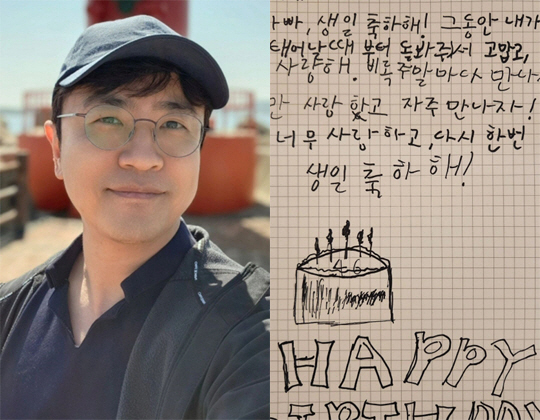 빠, 생일 축하해! 그동안 내가
태어날때 부터 돌봐줘서 고맙고,
사랑해. 비록 주말마다 만나
사랑 하고 자주 만나자!
너무 사랑하고, 다시 한번
생일 축하해!
46
HAPPY
BIRTHDAY